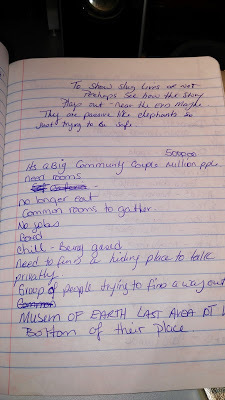 To show slug lives or not
Perhaps see how the story
Plays out - near the end maybe
They are passive like elephants so
just trying to be safe
500000
Its a Big Community Couple million pple.
need rooms
no longer eat
Common rooms to gather
No jobs
Bored
Chill - Being good
need to find a hiding place to talk
privately
Group of people trying to find a way out
Common
Museum OF EARTH LAST AREA AT
Bottom of their place